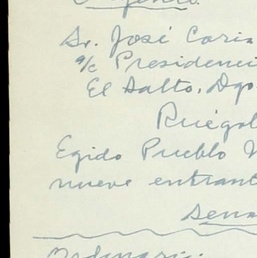 Sr. José
a/c Presidenci
El Salto, Dgo
Ruégol
Egido Pueblo N
nueve entrant
Sena
Ordinario.